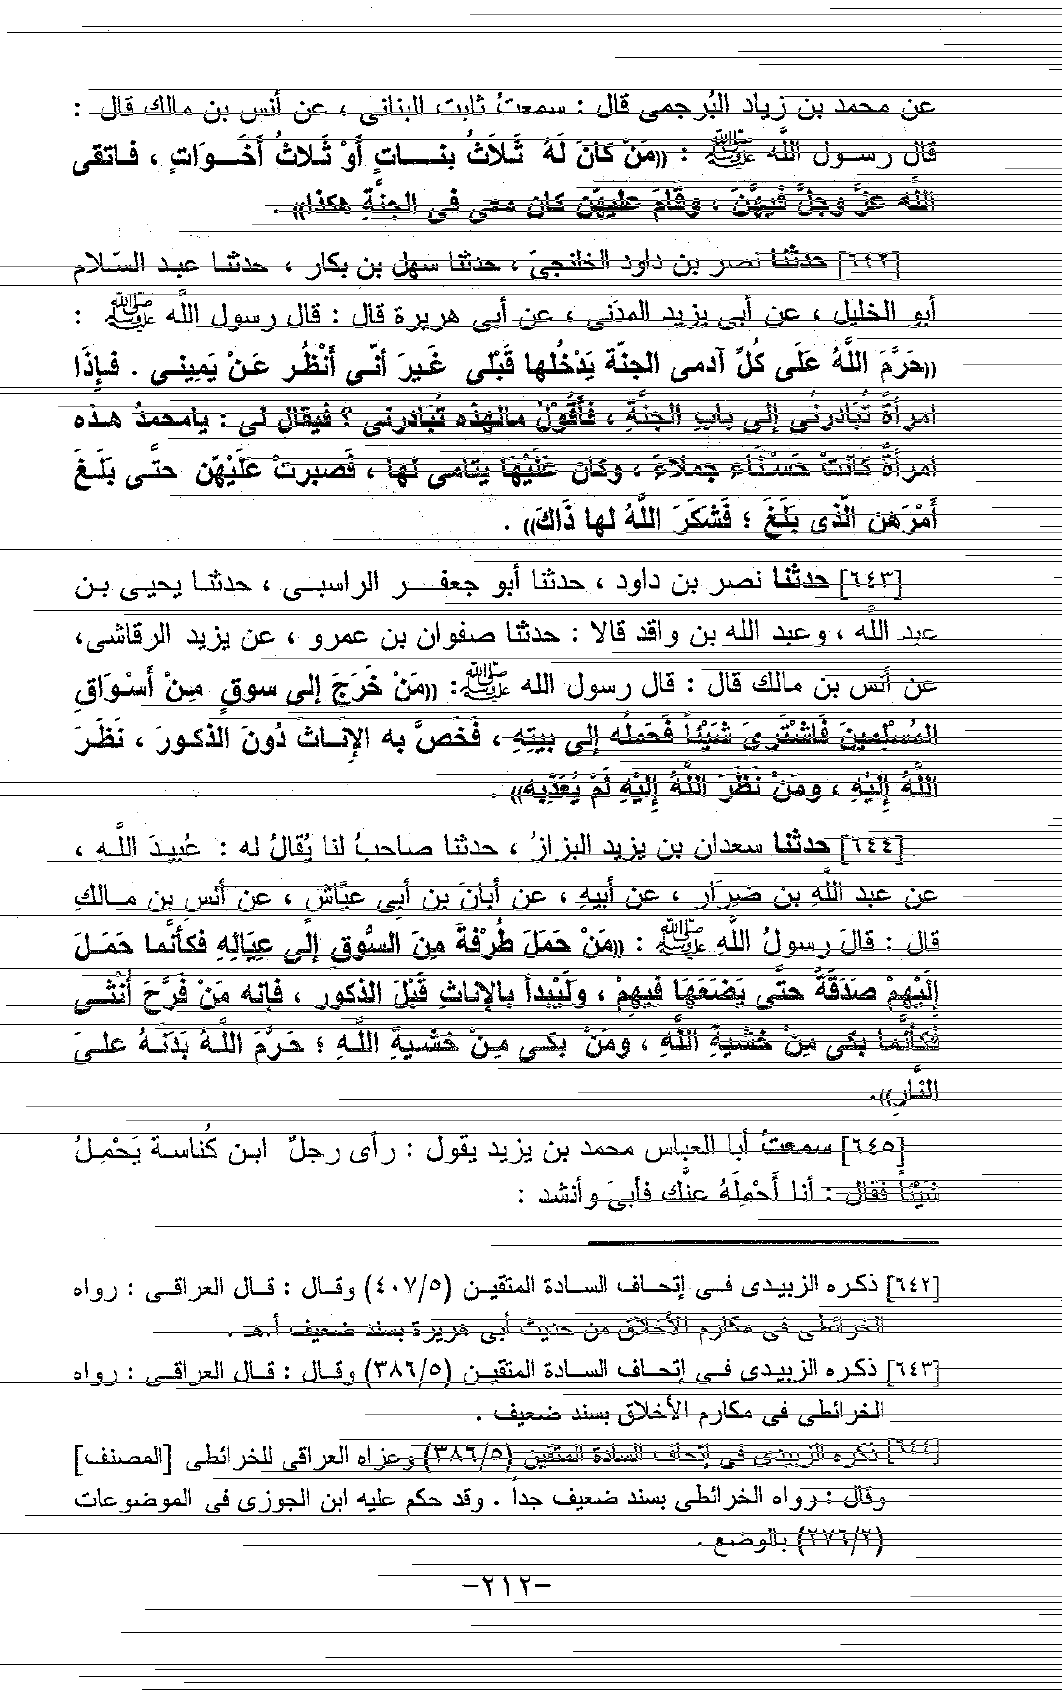 عن محمد بن زياد البُرجمى قال : سمعتُ ثابت البنانى ، عن أنس بن مالك قال :
قال رسول اللَّه ﷺ : «مَنْ كَانَ لَهُ ثَلَاثُ بنـــاتٍ أَوْ ثَلاثُ أَخَـوَاتٍ ، فـاتقى
اللَّه عزَّ وجلَّ فيهنَّ ، وقَامَ عليهنّ كان معى فى الجنَّةِ هكذا» .
[٦٤٢] حدثنا نصر بن داود الخلنجىَ ، حدثنا سهل بن بكار ، حدثنـا عبـد السّـلام
أبو الخليل ، عن أبى يزيد المدنى ، عن أبى هريرة قال : قال رسول اللَّه ﷺ :
«حَرَّمَ اللَّهُ عَلَى كُلِّ آدمى الجنّة يَدْخُلها قَبْلى غَـيرَ أنّـى أَنْظُـر عَـنْ يَمِينـى . فـإذَا
امرأةٌ تُبَادرنُى إلى بابِ الجنَّةِ ، فأقُولُ مالهذه تُبَادرنى ؟ فيقال لى : يامحمدُ هـذه
امرأةٌ كانَتْ حَسْنَاءَ جملاءَ ، وكان عَلَيْهَا يتامى لها ، فَصبرتْ عَلَيْهّن حتَّـى بَلَـغَ
أَمْرَهن الّذى بَلَغَ ؛ فَشَكَرَ اللَّهُ لها ذَاكَ» .
[٦٤٣] حدثنا نصر بن داود ، حدثنا أبو جعفــر الراسبـى ، حدثنـا يحيـى بـن
عبد اللَّه ، وعبد الله بن واقد قالا : حدثنا صفوان بن عمرو ، عن يزيد الرقاشى،
عن أنس بن مالك قال : قال رسول الله ﷺ: «مَنْ خَرَجَ إلى سوقٍ مِـنْ أَسْـوَاقِ
المُسْلِمينَ فَاشْتَرى شَيْئاً فَحَملُه إلى بيتِهِ ، فَخَصَّ به الإنـاث دُونَ الذكـورَ ، نَظَـرَ
اللَّهُ إلَيْهِ ، ومَنْ نَظَرَ اللَّهُ إلَيْهِ لَمْ يُعَذّبِه» .
[٦٤٤] حدثنا سعدان بن يزيد البزازُ ، حدثنا صاحبُ لنا يُقالُ له : عُبيدَ اللَّـهِ ،
عن عبد اللَّهِ بن ضِرَار ، عن أبيهِ ، عن أبانَ بن أبى عيَّاش ، عن أنس بن مـالكِ
قال : قالَ رسولُ اللَّهِ ﷺ : «مَنْ حَمَلَ طُرْفَةً مِنَ السُّوقِ إلَى عِيَالِهِ فكأنَّما حَمَـلَ
إلَيْهِمْ صَدَقَةً حتَّى يَضَعَهَا فيهِمْ ، ولْيَبْدأ بالإناثِ قَبْلَ الذكور ، فإنه مَنْ فَرَّحَ أُنْثَـى
فكأنَّما بكَى مِنْ خشيةِ اللَّهِ ، ومَنْ بكـى مِـنْ خَشْـيةِ اللَّـهِ ؛ حَـرَّمَ اللَّـهُ بَدَنَـهُ علـىَ
النَّارِ».
[٦٤٥] سمعتُ أبا العباس محمد بن يزيد يقول : رأى رجلٌ ابـن كُناسـة يَحْمِـلُ
شيْئاً فقال : أنا أَحْمِلُهُ عنْكَ فأبىَ وأنشد :
[٦٤٢] ذكـره الزبيـدى فـى إتحـاف السـادة المتقيـن (٤٠٧/٥) وقـال : قـال العراقـى : رواه
الخرائطى فى مكارم الأخلاق من حديث أبى هريرة بسند ضعيف أ.هـ .
[٦٤٣] ذكـره الزبيـدى فـى إتحـاف السـادة المتقيـن (٣٨٦/٥) وقـال : قـال العراقـى : رواه
الخرائطى فى مكارم الأخلاق بسند ضعيف .
[٦٤٤] ذكره الزبيدى فى إتحاف السادة المتقين (٣٨٦/٥) وعزاه العراقى للخرائطى [المصنف]
وقال : رواه الخرائطى بسند ضعيف جداً . وقد حكم عليه ابن الجوزى فى الموضوعات
(٢٧٦/٢) بالوضع .
-٢١٢-